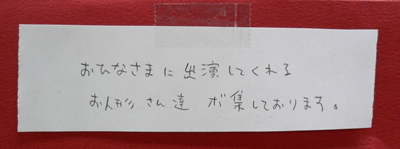 おひなさまに出演してくれる
お人形さん達 ボ集しております。